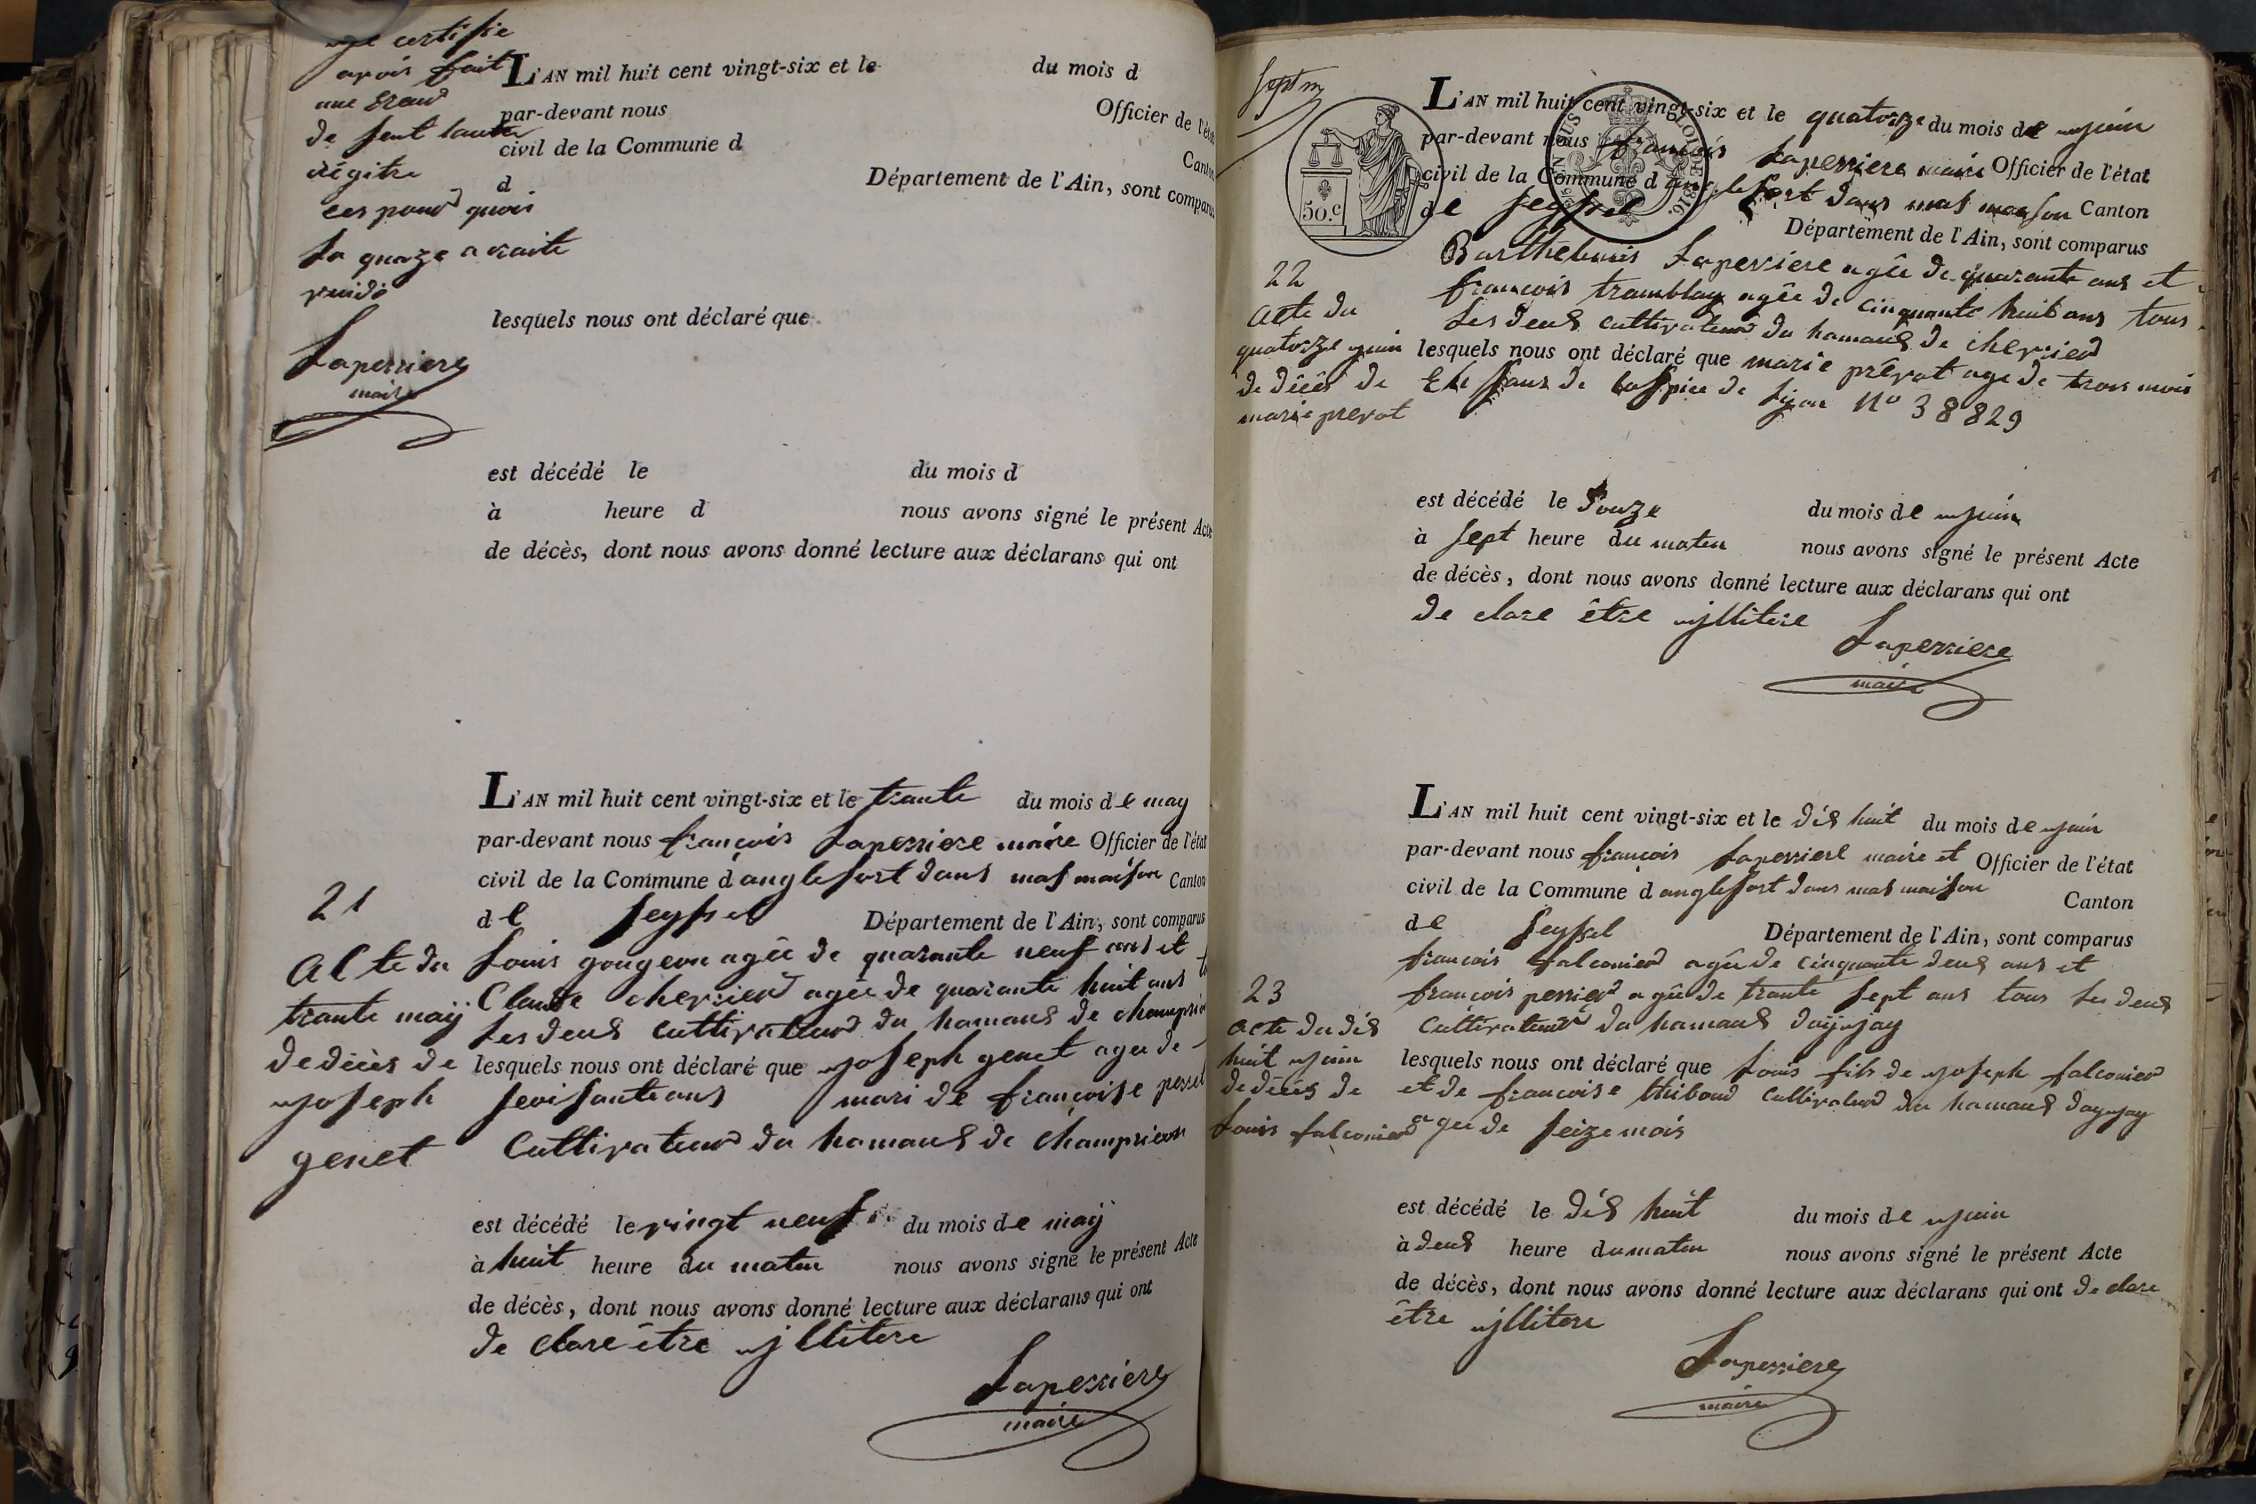 certifie
avoir fait
une
de sent
régitre
ces pour quoi
la quaze a raite
vuide
Laperriere
maire
L'AN mil huit cent vingt-six et le du mois d
par-devant nous Officier de l'état
civil de la Commune d Canton
d Département de l'Ain, sont comparus
lesquels nous ont déclaré que
est décédé le du mois d
à heure d nous avons signé le présent Acte
de décès, dont nous avons donné lecture aux déclarans qui ont
21
acte du
trante maÿ
de décès de
joseph
genet
L'AN mil huit cent vingt-six et le trante du mois de may
par-devant nous françois Laperriere maire Officier de l'état
civil de la Commune d'anglefort dans mas maison Canton
de Seyssel Département de l'Ain, sont comparus
Louis gougeon agée de quarante neuf ans et
Claude chervier agée de quarante huit ans
Les deux cultivateur du hamaux de
lesquels nous ont déclaré que joseph genet agee de
seoisante ans mari de françoise
Cultivateur du hamaux de
est décédé le vingt neuf du mois de maÿ
à huit heure du maten nous avons signé le présent Acte
de décès, dont nous avons donné lecture aux déclarans qui ont
de clare être jllitere
Laperriere
maire
50.c
L'AN mil huit cent vingt-six et le quatorze du mois de juin
par-devant nous françois Laperriere maire Officier de l'état
civil de la Commune d'anglefort dans mas maison Canton
de Seyssel
Département de l'Ain, sont comparus
22
acte du
quatorze juin
de décès de
marie prevot
Barthelemis Laperiere agée de quarante ans et
françois tramblay agée de cinquante huit ans tous
Les deux cultivateur du hamaux de chervier
lesquels nous ont déclaré que marie prévot age de trois mois
de Lyon No 38829
est décédé le Douze du mois de juin
à sept heure du maten nous avons signé le présent Acte
de décès, dont nous avons donné lecture aux déclarans qui ont
de clare être jllitere
Laperriere
maire
23
acte du dix
huit juin
de décès de
Louis falconier
L'AN mil huit cent vingt-six et le dix huit du mois de juin
par-devant nous françois Laperriere maire et Officier de l'état
civil de la Commune d'anglefort dans mas maison Canton
de Seyssel Département de l'Ain, sont comparus
françois falconier agée de cinquante deux ans et
françois perrier agée de trante sept ans tous Les deux
Cultivateur du hamaux
lesquels nous ont déclaré que Louis fils de joseph falconier
et de francoise thiboud Cultivateur du hamaux
agee de seize mois
est décédé le dix huit du mois de juin
à deux heure du maten nous avons signé le présent Acte
de décès, dont nous avons donné lecture aux déclarans qui ont de clare
être jllitere
Laperriere
maire